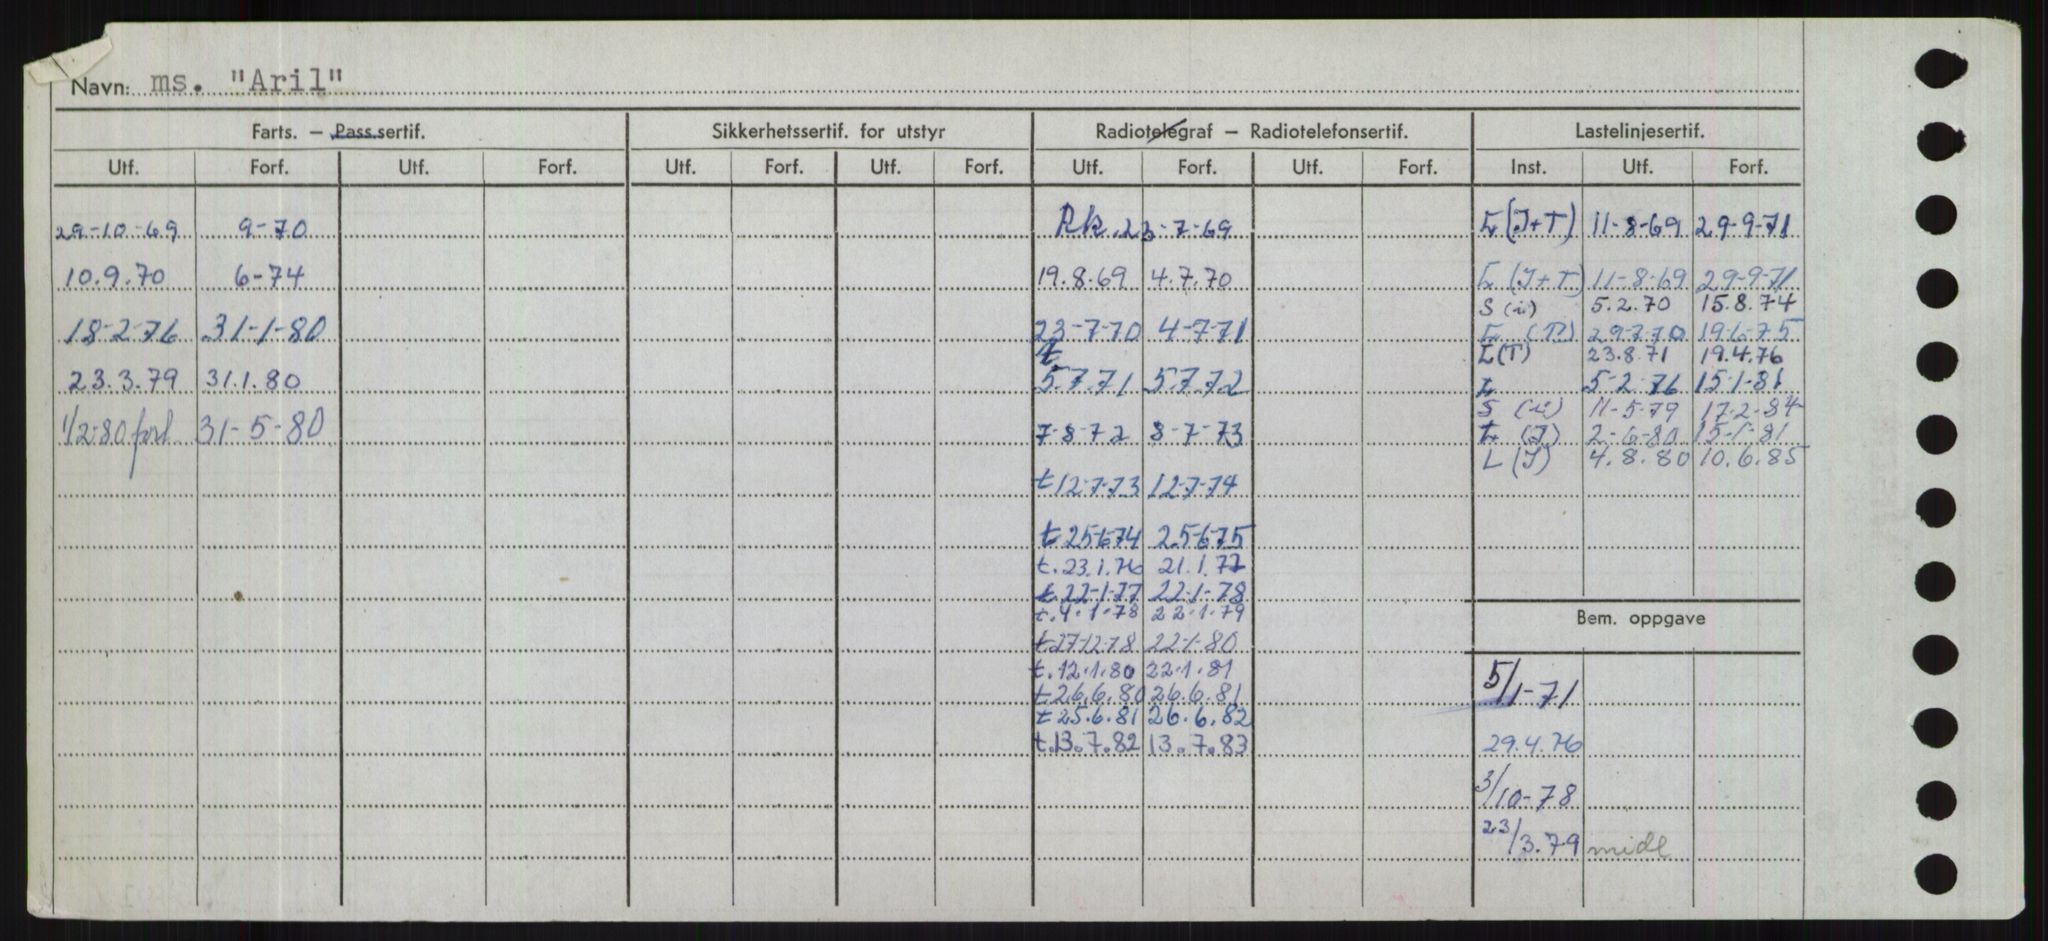 Navn: ms. "Aril"
Farts. – Pass.sertif. Sikkerhetssertif. for utstyr Radiotelegraf – Radiotelefonsertif. Lastelinjesertif.
Utf. Forf. Utf. Forf. Utf. Forf. Utf. Forf. Utf. Forf. Utf. Forf. Inst. Utf. Forf.
29-10-69 9-70 Rk. 23-7-69 L(J+T) 11-8-69 29-9-71
10.9.70 6-74 19.8.69 4.7.70 L(J+T) 11-8-69 29-9-71
S (ii) 5.2.70 15.8.74
18-2-76 31-1-80 23-7-70 4-7-71 29.7.70 19.6.75
t L(T) 23.8.71 19.4.76
23.3.79 31.1.80 5.7.71 5.7.72 L 5-2-76 15-1-81
S (ii) 11-5-79 17-2-84
1/2-80 forl 31-5-80 7-8-72 8-7-73 L (J) 2-6-80 15-1-81
L (J) 4.8.80 10.6.85
t 12-7-73 12-7-74
t 25-6-74 25-6-75
t. 23.1.76 21.1.77
t. 22-1-77 22-1-78
t. 4.1.78 22.1.79
Bem. oppgave
t 27-12-78 22-1-80
t. 12.1.80 22.1.81
5/1-71
t 26.6.80 26.6.81
t 25.6.81 26.6.82
t. 13.7.82 13.7.83 29.4.76
3/10-78
23/3.79 midl